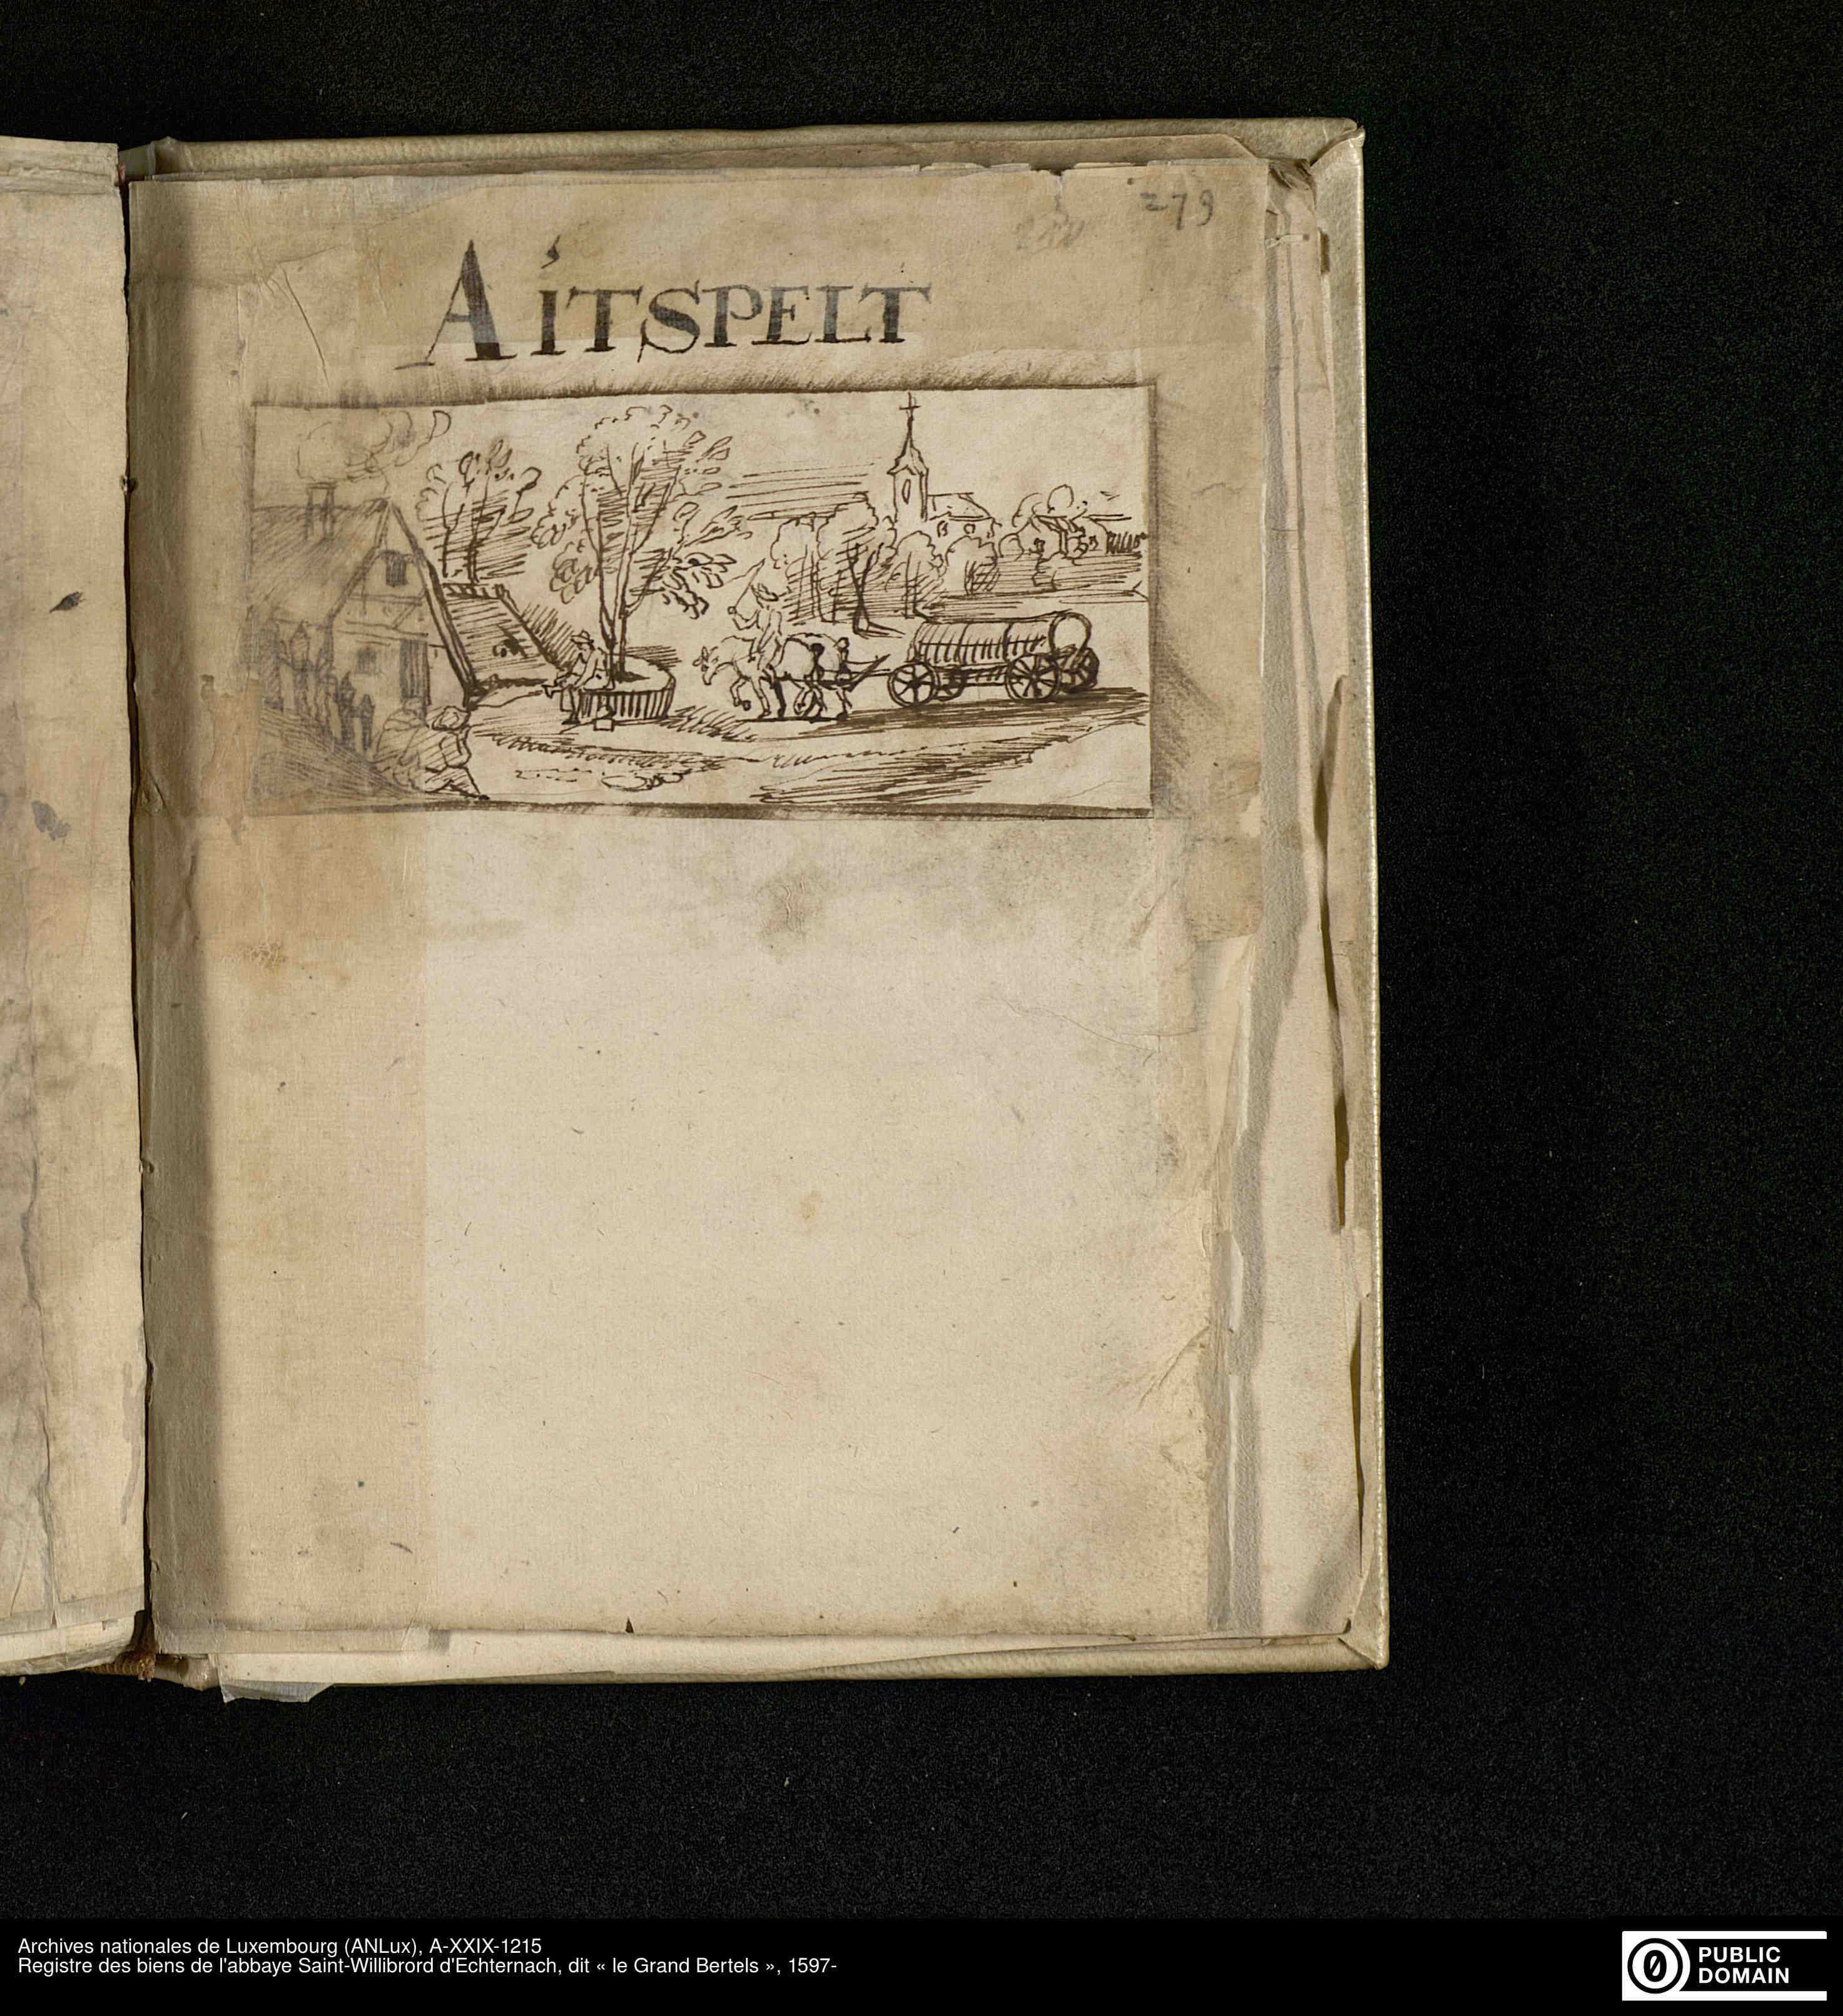 279
AÍTSPELT
Archives nationales de Luxembourg (ANLux), A-XXIX-1215
Registre des biens de l'abbaye Saint-Willibrord d'Echternach, dit « le Grand Bertels », 1597-
PUBLIC
DOMAIN